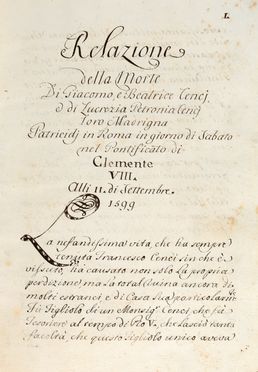 1.
Relazione
della Morte
Di Giacomo, e Beatrice Cencj,
e di Lucrezia Petronia Cencj
loro Madrigna
Patricidj in Roma in giorno di Sabato
nel Pontificato di
Clemente
VIII.
Alli 11. di Settembre.
1599
La nefandissima vita, che ha sempre
tenuta Francesco Cenci sin che è
vissuto, ha causato non solo la propria
perdizione, ma la total ruina ancora di
molti estranei, e di Casa sua particolarm.
Fù Figliolo di un Monsig. Cenci che fù
Tesoriere al tempo di Pio V., che lasciò tanta
facoltà, che questo Figliolo unico aveva